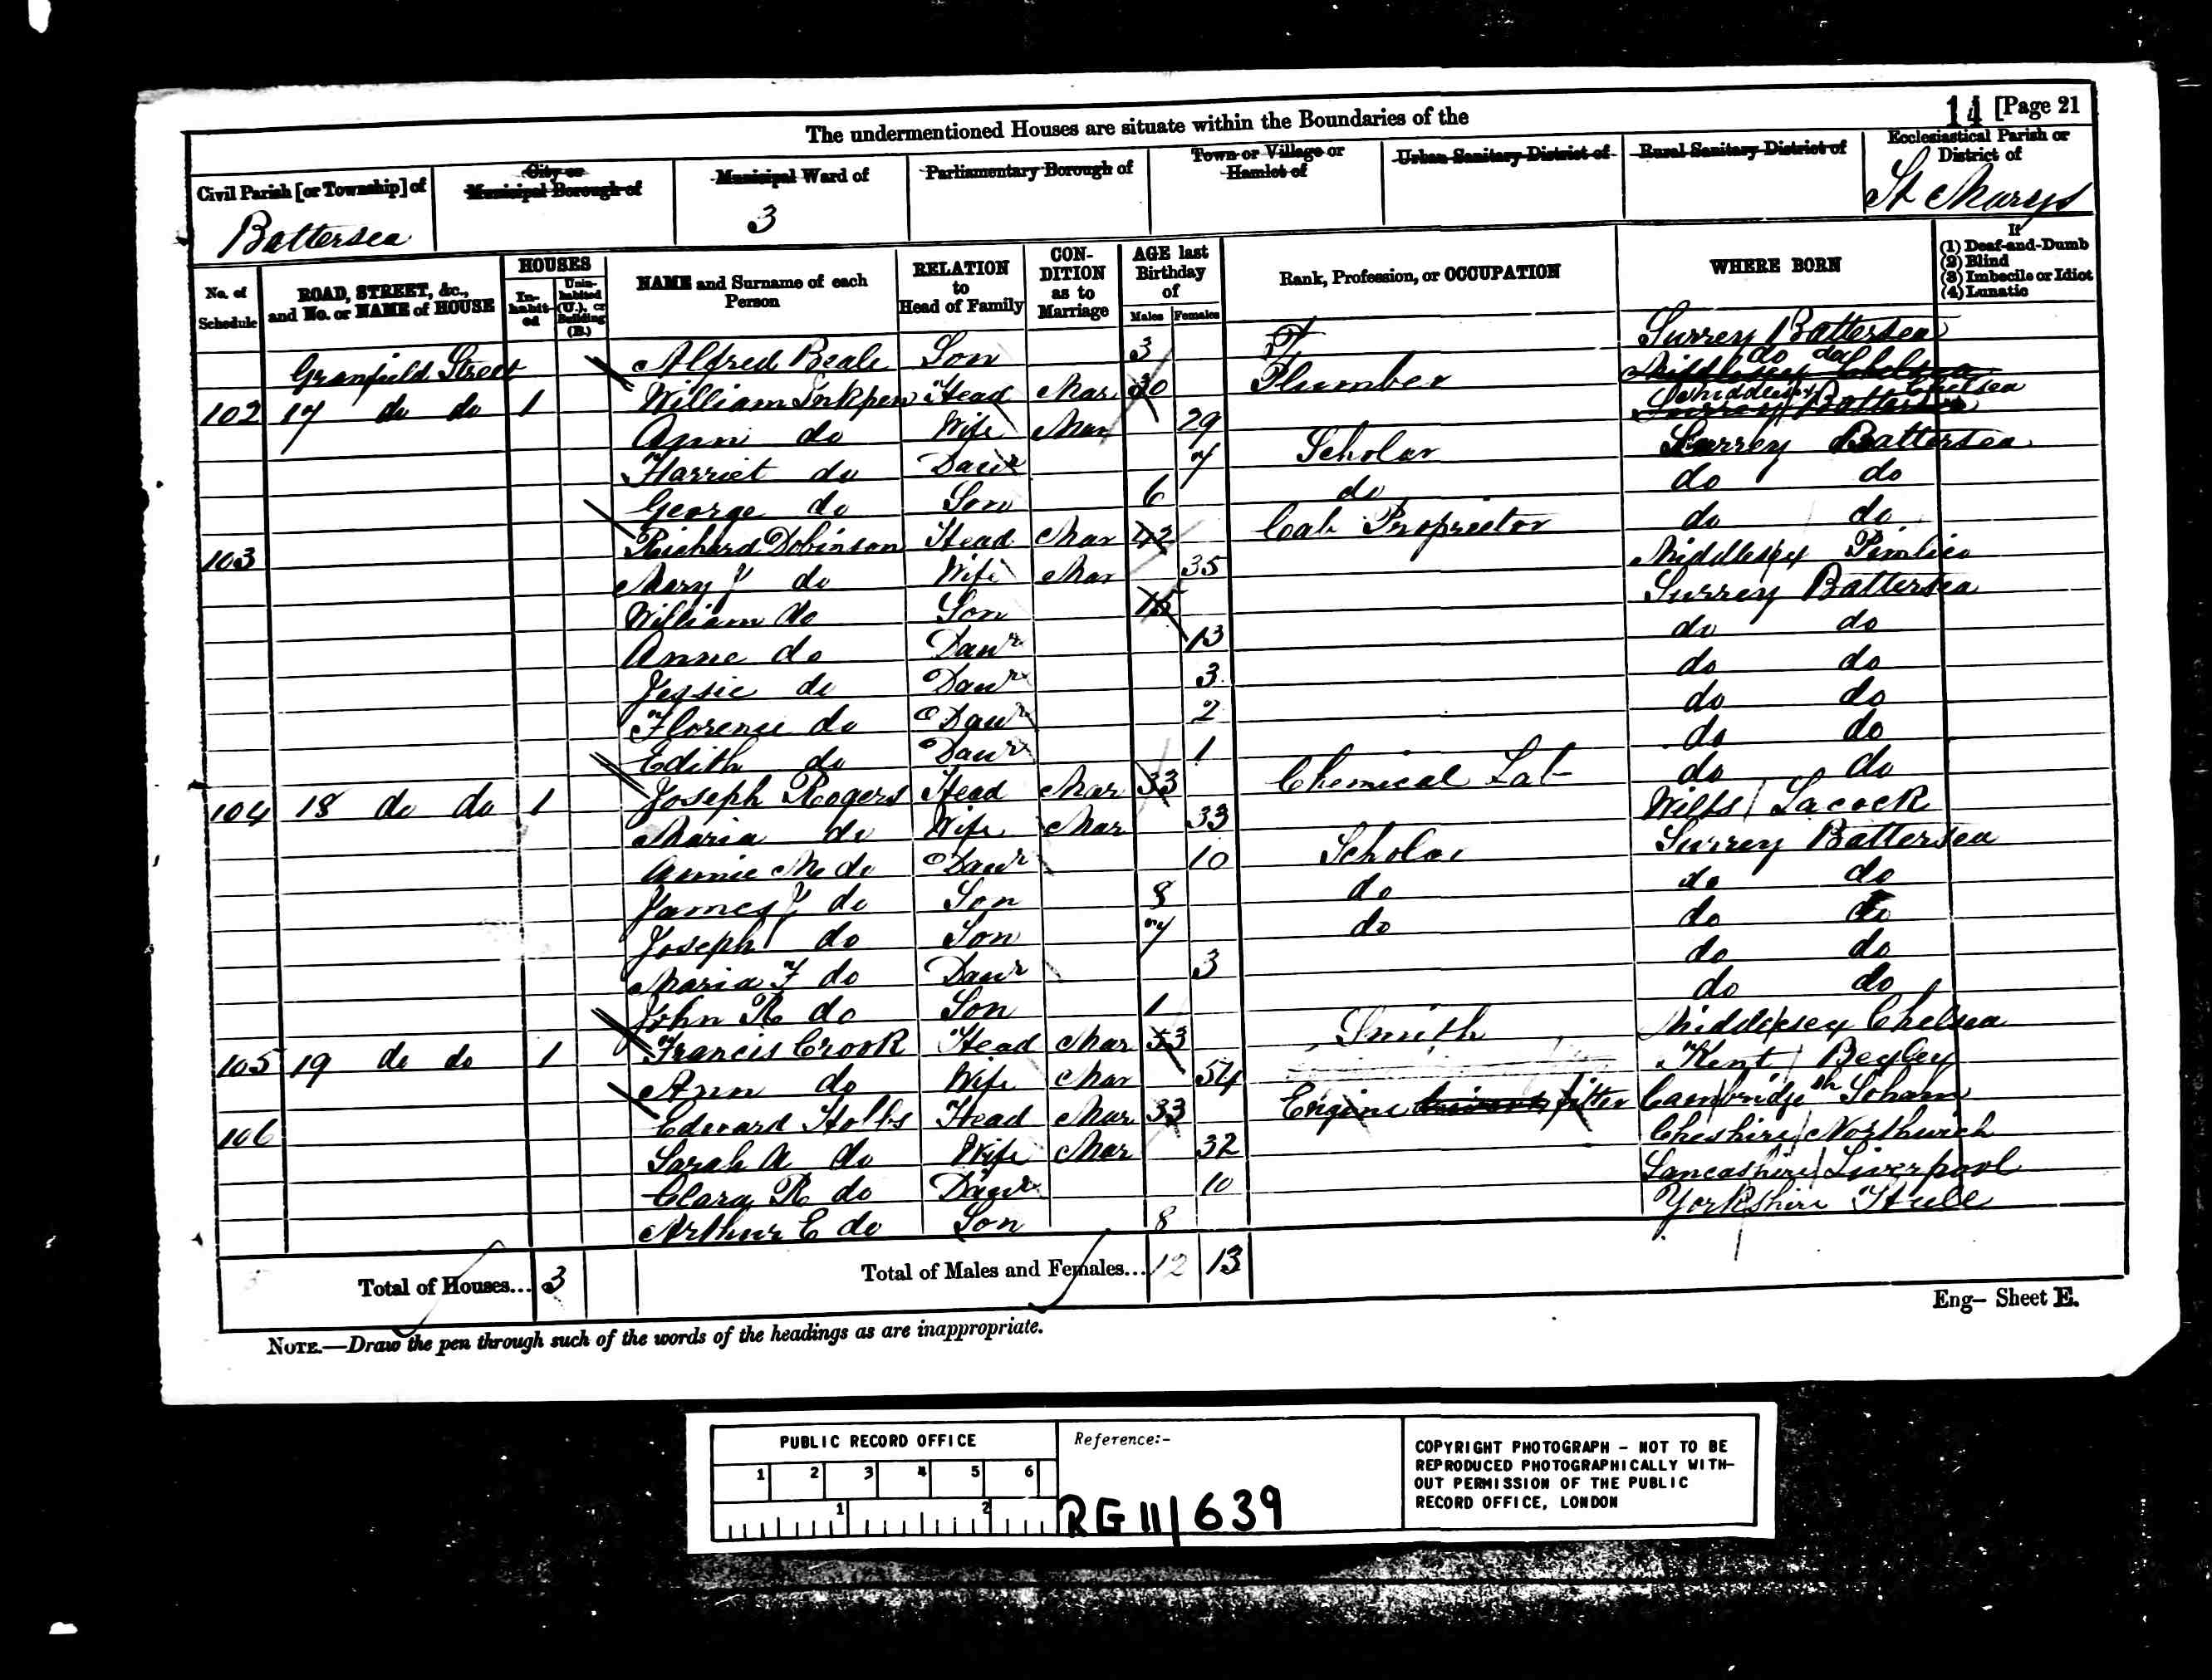 14 [Page 21
The undermentioned Houses are situate within the Boundaries of the
Civil Parish [or Township] of
City or Municipal Borough of
Municipal Ward of
Parliamentary Borough of
Town or Village or Hamlet of
Urban Sanitary District of
Rural Sanitary District of
Ecclesiastical Parish or District of
Battersea 3 St Marys
No. of Schedule
ROAD, STREET, &c., and No. or NAME of HOUSE
HOUSES
In-habit-ed
Unin-habited (U.), or Building (B.)
NAME and Surname of each Person
RELATION to Head of Family
CON-DITION as to Marriage
AGE last Birthday of
Males Females
Rank, Profession, or OCCUPATION
WHERE BORN
If
(1) Deaf-and-Dumb
(2) Blind
(3) Imbecile or Idiot
(4) Lunatic
Granfield Street Alfred Beale Son 3 Surrey Battersea
102 17 do do 1 William Inkpen Head Mar 30 Plumber do do Middlesex Chelsea
Ann do Wife Mar 29 Middlesex Chelsea Surrey Battersea
Harriet do Daur 7 Scholar Surrey Battersea
George do Son 6 do do do
103 Richard Dobinson Head Mar 42 Cab Proprietor do do
Mary J do Wife Mar 35 Middlesex Pimlico
William do Son 15 Surrey Battersea
Anne do Daur 13 do do
Jessie do Daur 3 do do
Florence do Daur 2 do do
Edith do Daur 1 do do
104 18 do do 1 Joseph Rogers Head Mar 33 Chemical Lab do do
Maria do Wife Mar 33 Wilts Lacock
Annie M do Daur 10 Scholar Surrey Battersea
James J do Son 8 do do do
Joseph do Son 7 do do do
Maria F do Daur 3 do do
John R do Son 1 do do
105 19 do do 1 Francis Crook Head Mar 53 Smith Middlesex Chelsea
Ann do Wife Mar 54 Kent Bexley
106 Edward Hobbs Head Mar 33 Engine fitter Cambridgesh Soham
Sarah A do Wife Mar 32 Cheshire Northwich
Clara R do Daur 10 Lancashire Liverpool
Arthur E do Son 8 Yorkshire Hull
Total of Houses... 3 Total of Males and Females... 12 13
Eng— Sheet E.
NOTE.—Draw the pen through such of the words of the headings as are inappropriate.
PUBLIC RECORD OFFICE
1 2 3 4 5 6
1 2
Reference:-
RG 11/639
COPYRIGHT PHOTOGRAPH - NOT TO BE
REPRODUCED PHOTOGRAPHICALLY WITH-
OUT PERMISSION OF THE PUBLIC
RECORD OFFICE, LONDON